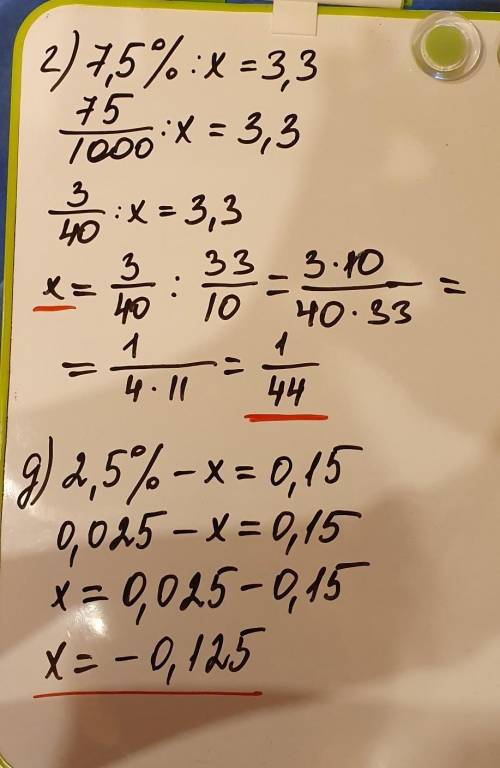 г) 7,5% : x = 3,3
75/1000 : x = 3,3
3/40 : x = 3,3
x = 3/40 : 33/10 = 3·10/40·33 =
= 1/4·11 = 1/44
д) 2,5% − x = 0,15
0,025 − x = 0,15
x = 0,025 − 0,15
x = − 0,125